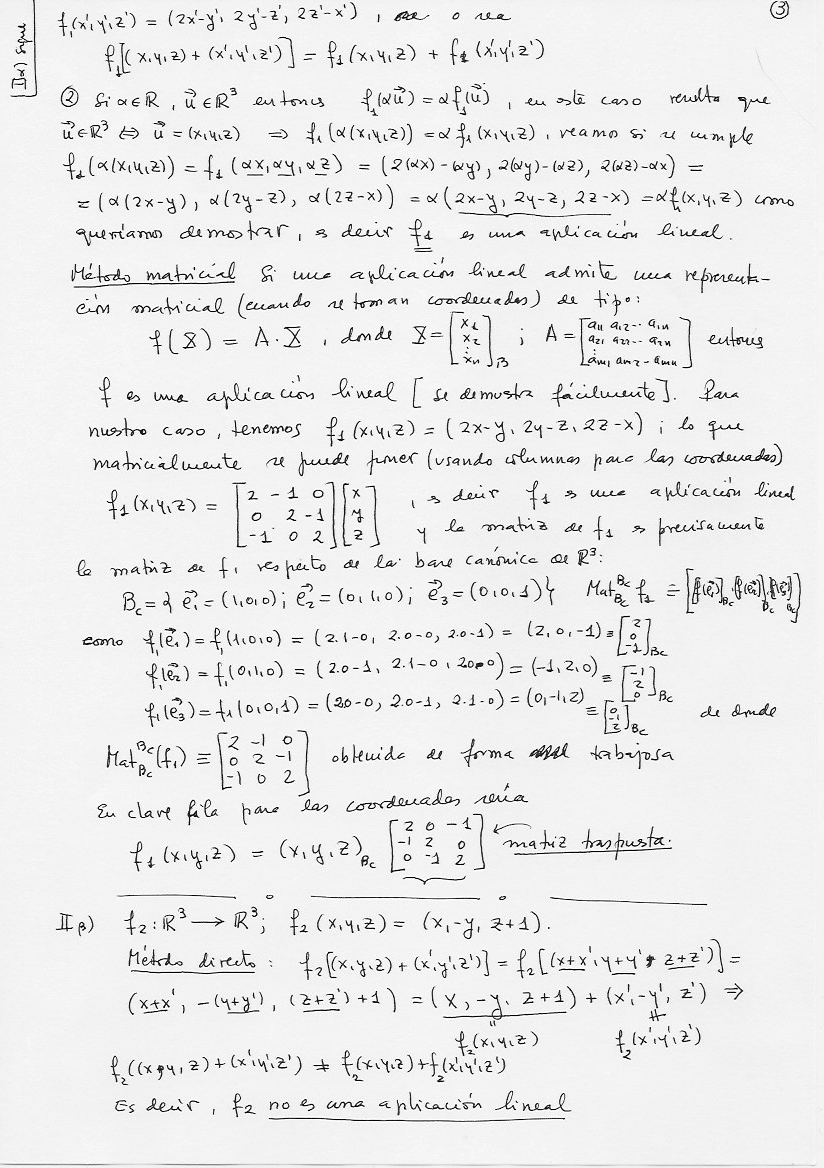 IIα) sigue
③
f₁(x',y',z') = (2x'-y', 2y'-z', 2z'-x') , o sea
f₁[(x,y,z) + (x',y',z')] = f₁(x,y,z) + f₁(x',y',z')
② Si α∈ℝ, u⃗∈ℝ³ entonces f₁(αu⃗) = αf₁(u⃗), en este caso resulta que
u⃗∈ℝ³ ⇔ u⃗ = (x,y,z) ⇒ f₁(α(x,y,z)) = α f₁(x,y,z), veamos si se cumple
f₁(α(x,y,z)) = f₁(αx, αy, αz) = (2(αx)-(αy), 2(αy)-(αz), 2(αz)-αx) =
= (α(2x-y), α(2y-z), α(2z-x)) = α(2x-y, 2y-z, 2z-x) = αf₁(x,y,z) como
queríamos demostrar, es decir f₁ es una aplicación lineal.
Método matricial Si una aplicación lineal admite una representa-
ción matricial (cuando se toman coordenadas) de tipo:
f(X) = A·X , donde X = [x₁ x₂ ⋮ xₙ]B ; A = [a₁₁ a₁₂ ... a₁ₙ a₂₁ a₂₂ ... a₂ₙ ⋮ aₘ₁ aₘ₂ ... aₘₙ] entonces
f es una aplicación lineal [se demuestra fácilmente]. Para
nuestro caso, tenemos f₁(x,y,z) = (2x-y, 2y-z, 2z-x) ; lo que
matricialmente se puede poner (usando columnas para las coordenadas)
f₁(x,y,z) = [2 -1 0 0 2 -1 -1 0 2] [x y z] , es decir f₁ es una aplicación lineal
y la matriz de f₁ es precisamente
la matriz de f₁ respecto de la base canónica de ℝ³:
Bc = { e⃗₁ = (1,0,0); e⃗₂ = (0,1,0); e⃗₃ = (0,0,1) } Mat Bc Bc f₁ ≡ [[f(e⃗₁)]Bc, [f(e⃗₂)]Bc, [f(e⃗₃)]Bc]
como f₁(e⃗₁) = f₁(1,0,0) = (2.1-0, 2.0-0, 2.0-1) = (2,0,-1) ≡ [2 0 -1]Bc
f₁(e⃗₂) = f₁(0,1,0) = (2.0-1, 2.1-0, 2.0-0) = (-1,2,0) ≡ [-1 2 0]Bc
f₁(e⃗₃) = f₁(0,0,1) = (2.0-0, 2.0-1, 2.1-0) = (0,-1,2) ≡ [0 -1 2]Bc de donde
Mat Bc Bc (f₁) ≡ [2 -1 0 0 2 -1 -1 0 2] obtenida de forma trabajosa
En clave fila para las coordenadas sería
f₁(x,y,z) = (x,y,z)Bc [2 0 -1 -1 2 0 0 -1 2] ← matriz traspuesta.
IIβ) f₂: ℝ³ → ℝ³; f₂(x,y,z) = (x,-y, z+1).
Método directo: f₂[(x,y,z) + (x',y',z')] = f₂[(x+x', y+y', z+z')] =
(x+x', -(y+y'), (z+z')+1) = (x, -y, z+1) + (x', -y', z') ⇒
= f₂(x,y,z) ≠ f₂(x',y',z')
f₂((x,y,z) + (x',y',z')) ≠ f₂(x,y,z) + f₂(x',y',z')
Es decir, f₂ no es una aplicación lineal